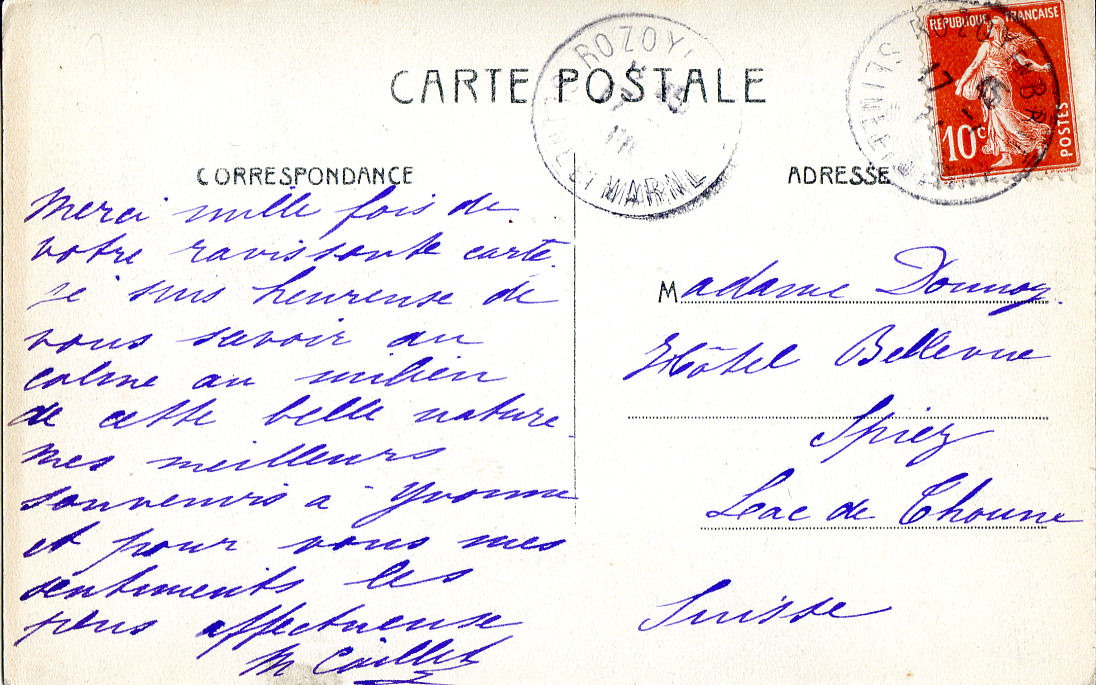 CARTE POSTALE
ROZOY
SEINE ET MARNE
REPUBLIQUE FRANÇAISE
10c
POSTES
CORRESPONDANCE
Merci mille fois de
votre ravissante carte.
je suis heureuse de
vous savoir au
calme au milieu
de cette belle nature.
mes meilleurs
souvenirs à Yvonne
et pour vous mes
sentiments les
plus affectueuse
M Caillet
ADRESSE
Madame
Hôtel Bellevue
Spiez
Lac de Thoune
Suisse